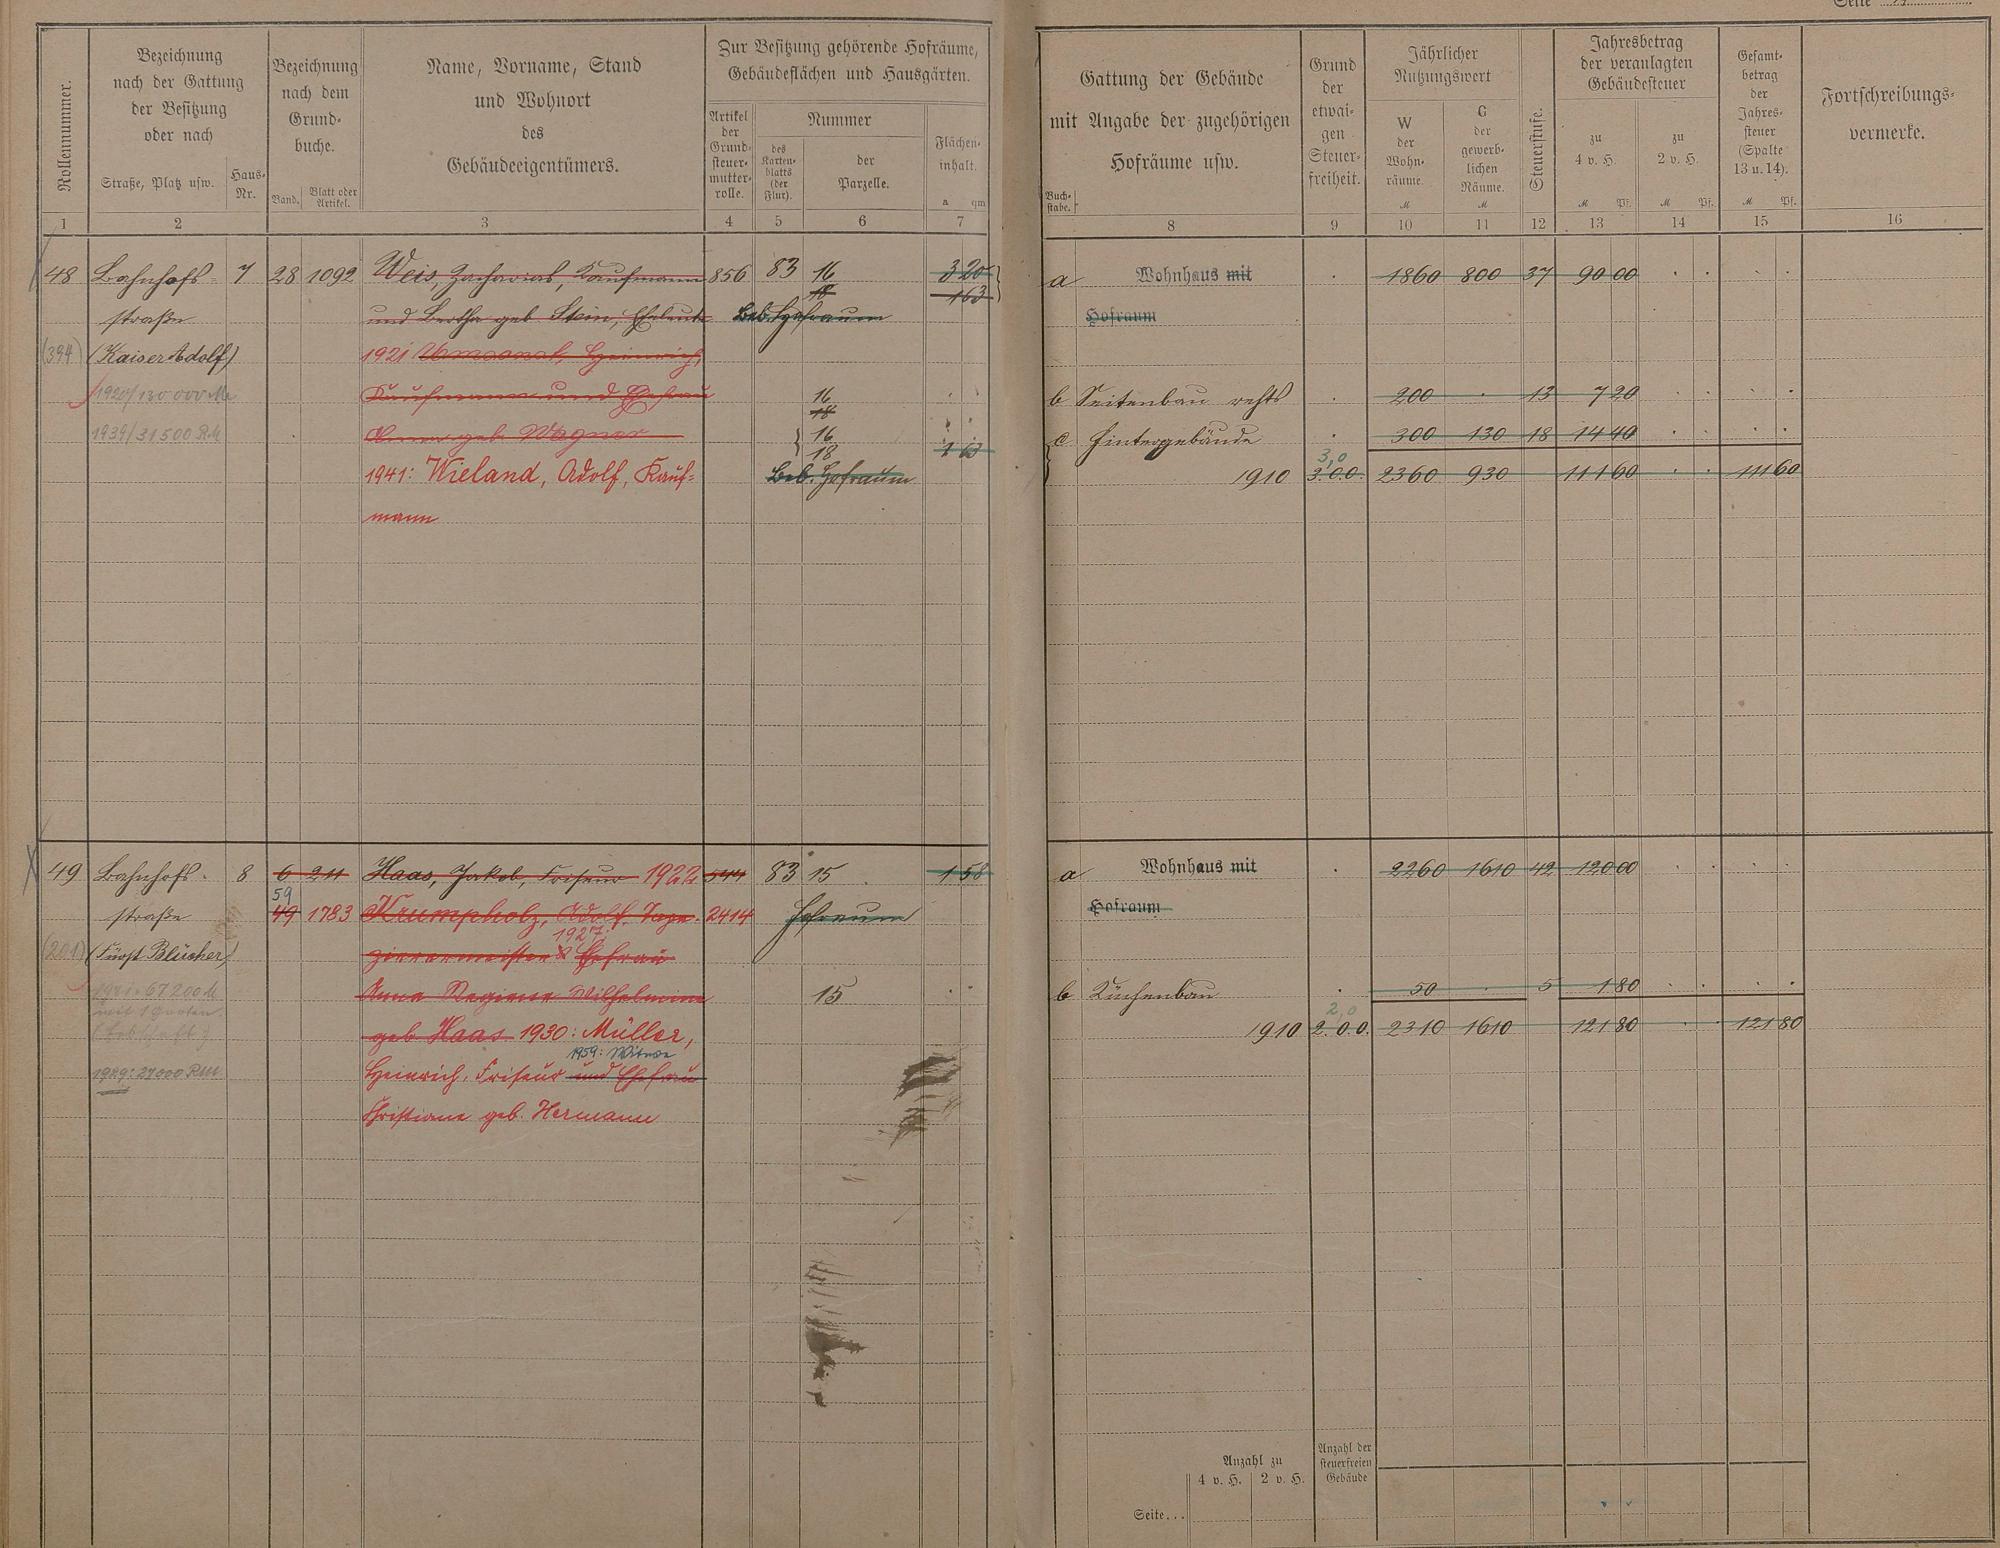 Rollennummer.
Bezeichnung
nach der Gattung
der Besitzung
oder nach
Straße, Platz usw.
Haus-
Nr.
Bezeichnung
nach dem
Grund-
buche.
Band.
Blatt oder
Artikel.
Name, Vorname, Stand
und Wohnort
des
Gebäudeeigentümers.
Zur Besitzung gehörende Hofräume,
Gebäudeflächen und Hausgärten.
Artikel
der
Grund-
steuer-
mutter-
rolle.
Nummer
des
Karten-
blatts
(der
Flur).
der
Parzelle.
Flächen-
inhalt.
a qm
1 2 3 4 5 6 7
48 Bahnhofs- 7 28 1092 Weis, Zacharias, Kaufmann 856 83 16 3 20
18 163
straße und Bertha geb. Stein, Eheleute Beb. Hofraum
(394) (Kaiser Adolf) 1921 Heinrich,
1920/130 000 M Kaufmann und Ehefrau 16
18
1939/31500 RM geb. Wagner 16
18 1 63
1941: Wieland, Adolf, Kauf- Beb. Hofraum
mann
49 Bahnhofs- 8 6 211 Haas, Jakob, Friseur 1922 544 83 15 1 58
59
straße 49 1783 Krumpholz, Adolf, Tape- 2414 Hofraum
1927:
(201) (Fürst Blücher) zierermeister & Ehefrau
67200 M Anna Regiene Wilhelmine 15
geb. Haas 1930: Müller,
1959: Witwe
1929: 27000 RM Heinrich, Friseur und Ehefrau
Christiane geb. Hermann
Seite
Gattung der Gebäude
mit Angabe der zugehörigen
Hofräume usw.
Buch-
stabe.
Grund
der
etwai-
gen
Steuer-
freiheit.
Jährlicher
Nutzungswert
W
der
Wohn-
räume.
M
G
der
gewerb-
lichen
Räume.
M
Steuerstufe.
Jahresbetrag
der veranlagten
Gebäudesteuer
zu
4 v. H.
M Pf.
zu
2 v. H.
M Pf.
Gesamt-
betrag
der
Jahres-
steuer
(Spalte
13 u. 14).
M Pf.
Fortschreibungs-
vermerke.
8 9 10 11 12 13 14 15 16
a Wohnhaus mit 1860 800 37 90 00
Hofraum
b Seitenbau rechts 200 13 7 20
c Hintergebäude 300 130 18 14 40
3,0
1910 3.0.0. 2360 930 111 60 111 60
a Wohnhaus mit 2260 1610 42 120 00
Hofraum
b Küchenbau 50 5 1 80
2,0
1910 2.0.0. 2310 1610 121 80 121 80
Anzahl zu
4 v. H. 2 v. H.
Anzahl der
steuerfreien
Gebäude
Seite...